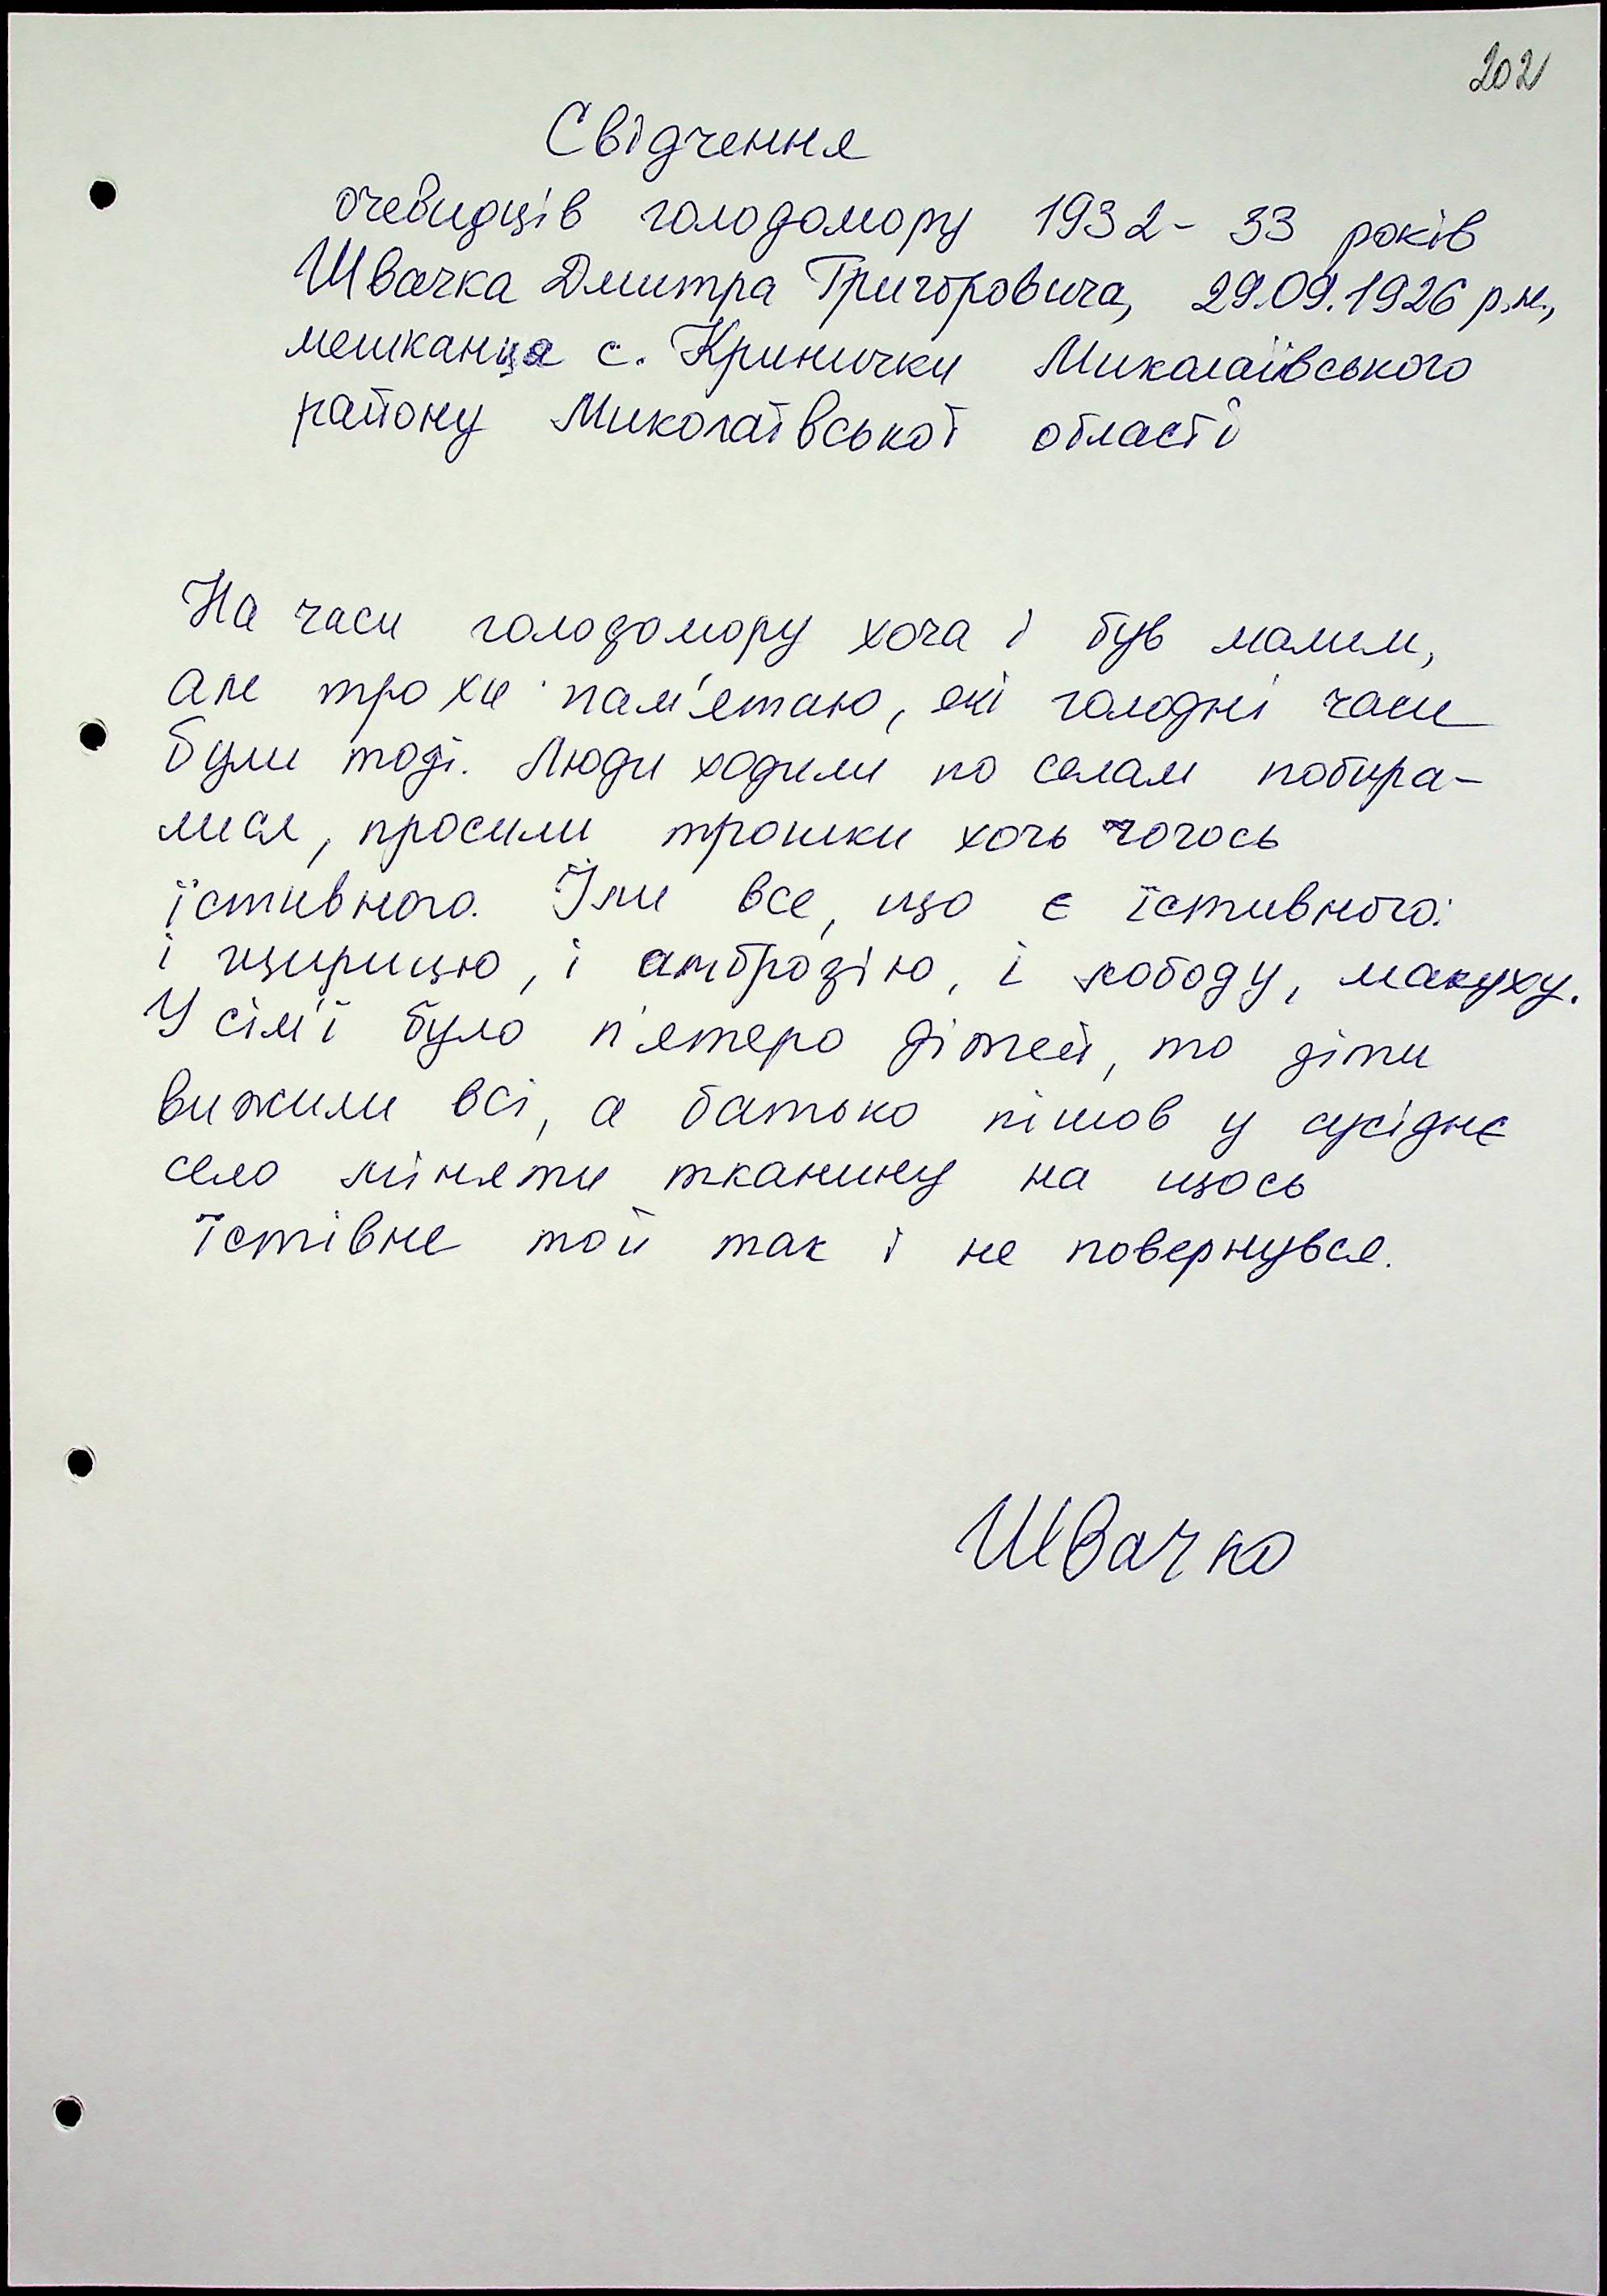 202
Свідчення
очевидців голодомору 1932-33 років
Швачка Дмитра Григоровича, 29.09.1926 р.н.,
мешканця с. Кринички Миколаївського
району Миколаївської області
На часи голодомору хоча і був малим,
але трохи пам'ятаю, які голодні часи
були тоді. Люди ходили по селам побира-
лися, просили трошки хочь чогось
їстивного. Їли все, що є їстивного:
і щирицю, і амброзію, і лободу, макуху.
У сім'ї було п'ятеро дітей, то діти
вижили всі, а батько пішов у сусіднє
село міняти тканину на щось
їстівне той так і не повернувся.
Швачко